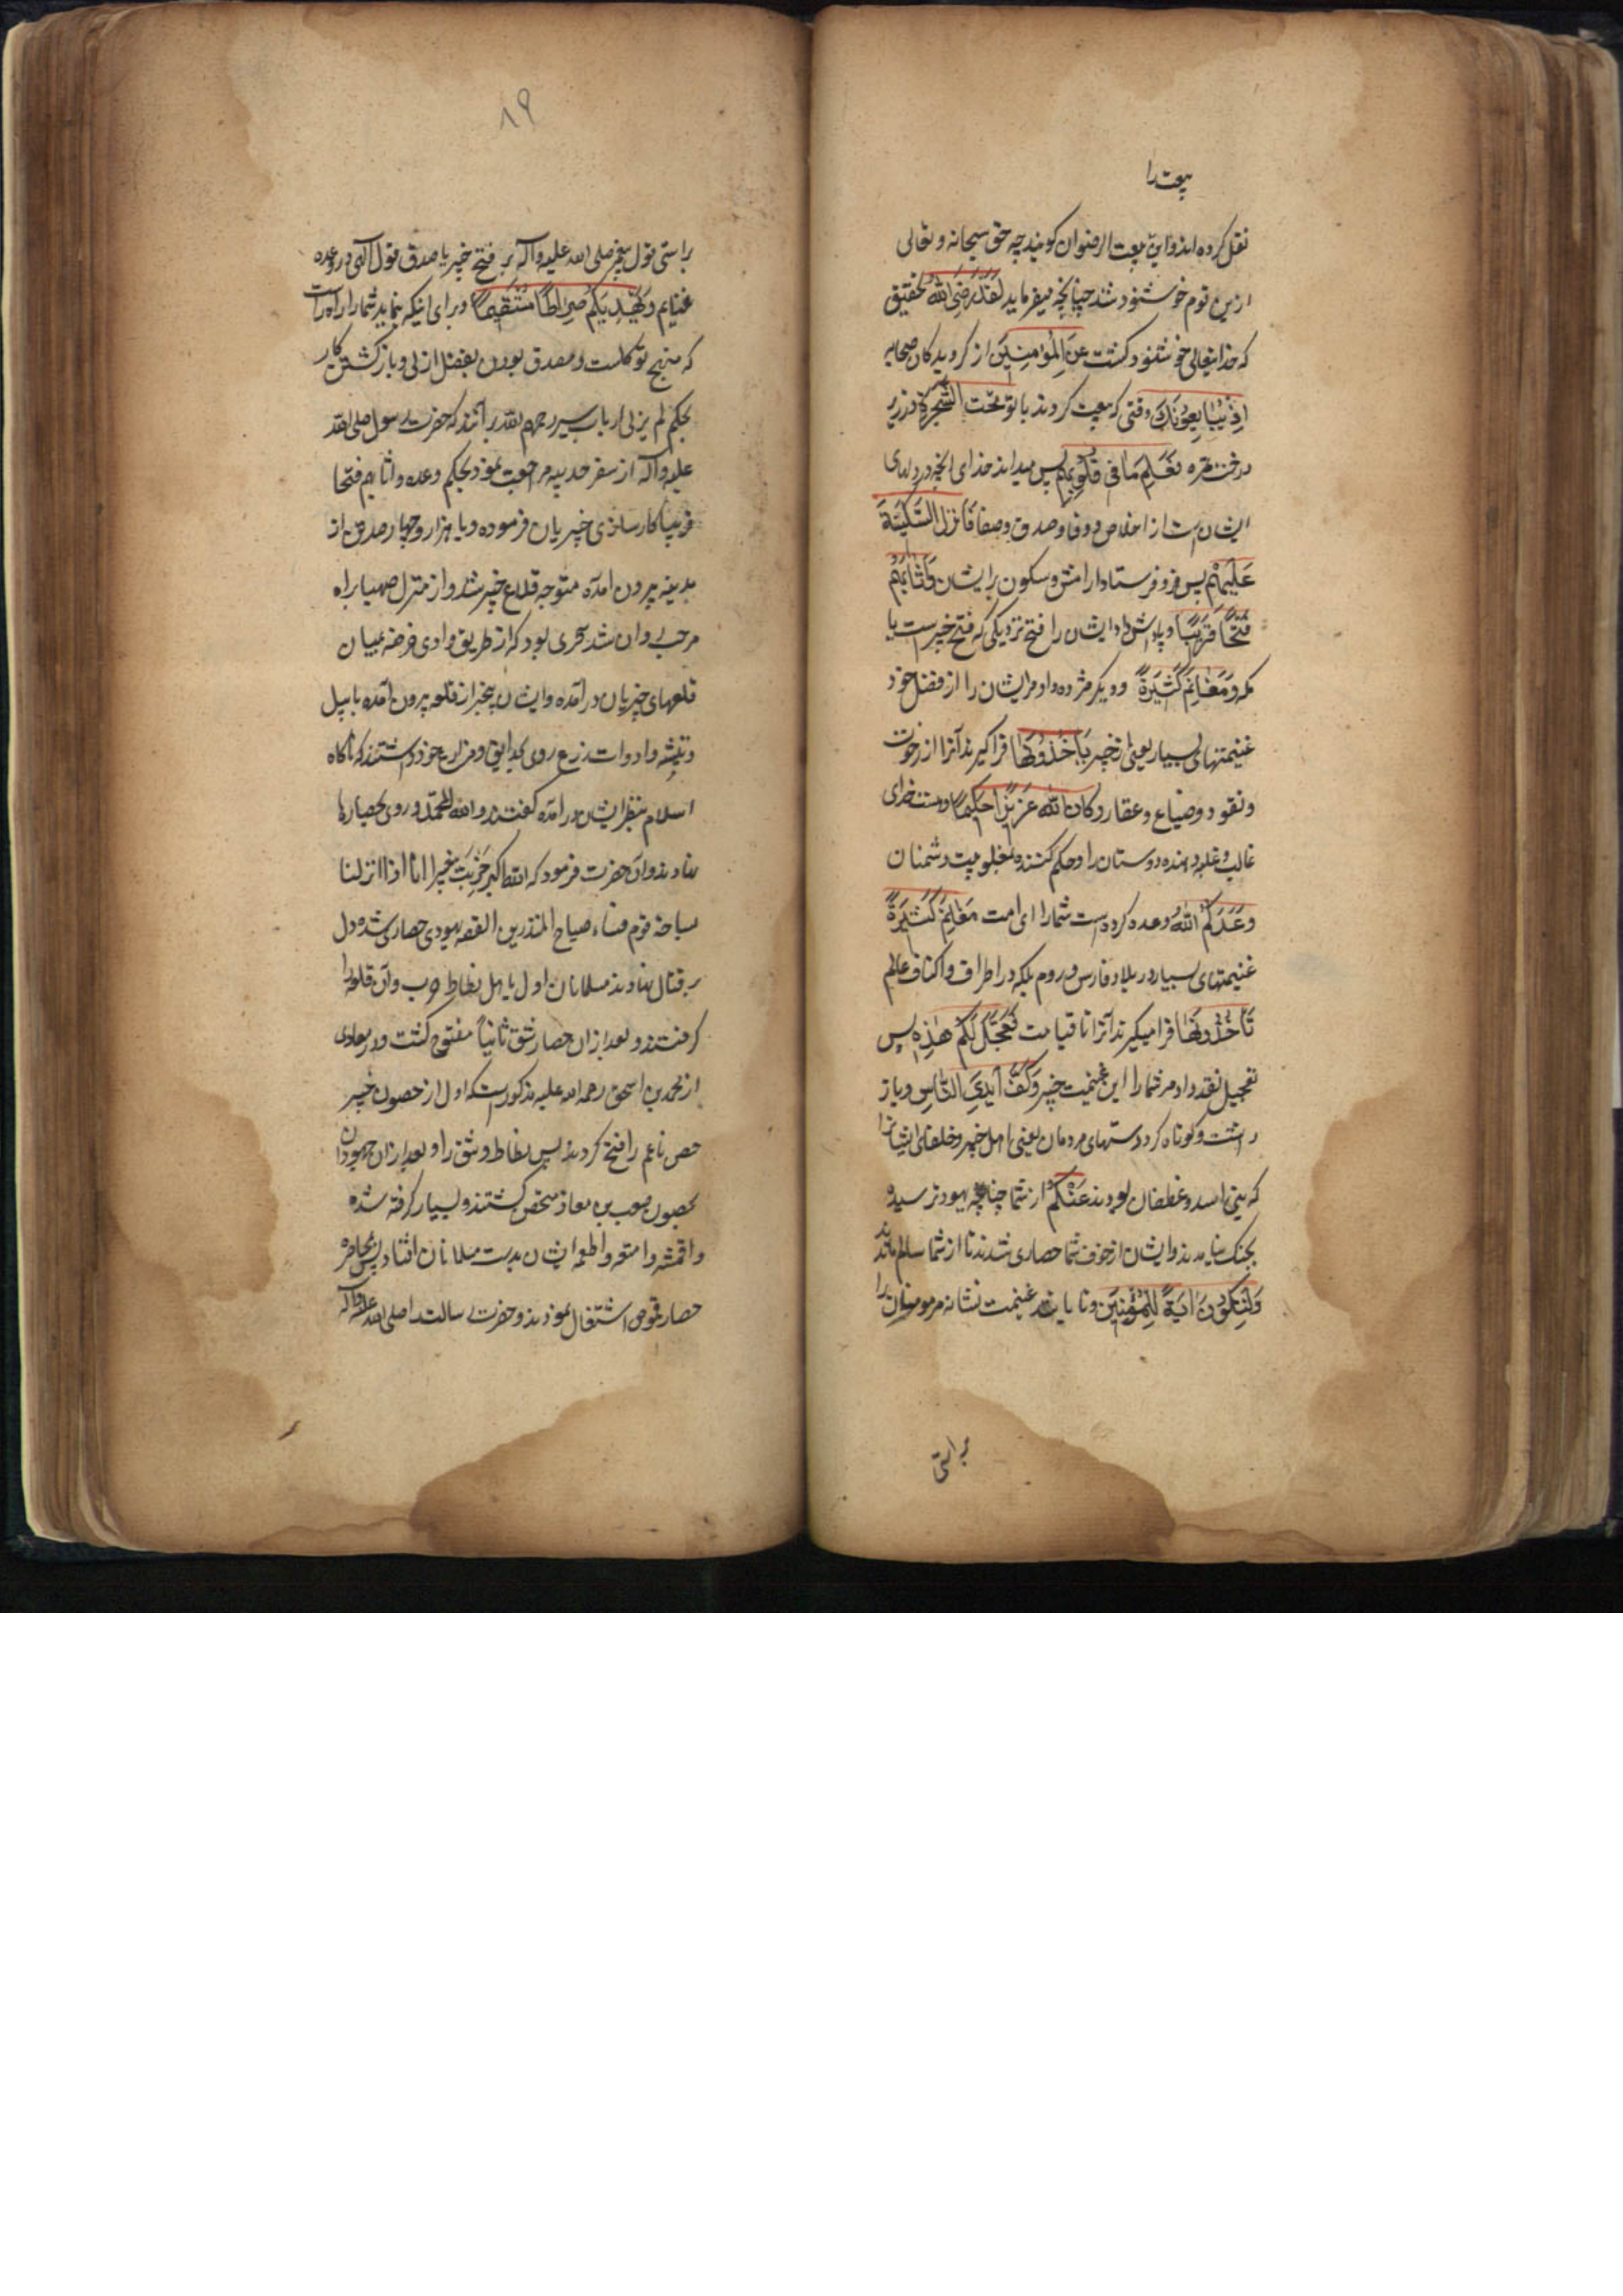 بیعت را
نقل کرده اند و این بیعت الرضوان کویند چه حق سبحانه و تعالی
ازین قوم خوشنود شد چنانچه میفرماید لَقَدْ رَضِیَ اللهُ تحقیق
که خدایتعالی خوشنود کشت عَنِ الْمُؤْمِنِینَ از کرویدکان صحابه
اِذْ یُبَایِعُونَکَ وقتی که بیعت کردند با تو تَحْتَ الشَّجَرَةِ در زیر
درخت سمره فَعَلِمَ مَا فِی قُلُوبِهِمْ پس میداند خدای انچه در دلهای
ایشان است از اخلاص و وفا و صدق و صفا فَاَنْزَلَ السَّکِینَةَ
عَلَیْهِمْ پس فرو فرستاد ارامش و سکون برایشان وَاَثَابَهُمْ
فَتْحًا قَرِیبًا و پاداش داد ایشان را فتح نزدیکی که فتح خیبرست یا
مکه وَمَغَانِمَ کَثِیرَةً و دیکر مژده داد مر ایشان را از فضل خود
غنیمتهای بسیار یعنی از خیبر یَاْخُذُونَهَا فرا کیرند آنرا از رخوت
و نقود و ضیاع و عقار وَکَانَ اللهُ عَزِیزًا حَکِیمًا و هست خدای
غالب و غلبه دهنده دوستان را و حکم کننده بمغلوبیت دشمنان
وَعَدَکُمُ اللهُ وعده کرده است شما را ای امت مَغَانِمَ کَثِیرَةً
غنیمتهای بسیار در بلاد فارس و روم بلکه در اطراف و اکناف عالم
تَاْخُذُونَهَا فرا میکیرند آنرا تا قیامت فَعَجَّلَ لَکُمْ هٰذِهِ پس
تعجیل نقد داد مر شما را این غنیمت خیبر وَکَفَّ اَیْدِیَ النَّاسِ و باز
داشت و کوتاه کرد دستهای مردمان یعنی اهل خیبر و خلفای ایشانرا
که بنی اسد و غطفان بودند عَنْکُمْ از شما چنانچه یهود ترسیده
بجنک نیامدند و ایشان از خوف شما حصاری شدند تا از شما سالم ماندند
وَلِتَکُونَ اٰیَةً لِلْمُؤْمِنِینَ و تا باشد غنیمت نشانه مر مومنان را
براستی
۸۹
براستی قول پیغمبر صلی الله علیه وآله بر فتح خیبر یا صدق قول الهی در وعده
غنایم وَیَهْدِیَکُمْ صِرَاطًا مُسْتَقِیمًا و برای اینکه بنماید شما را راه راست
که منهج توکلست و مصدق بودن بفضل ازلی و بازکشتن کار
بحکم لم یزلی ارباب سیر رحمهم الله برآنند که حضرت رسول صلی الله
علیه وآله از سفر حدیبیه مراجعت نمود بحکم وعده و اثابهم فتحا
قریبا کارسازی خیبریان فرموده و با هزار و چهارصد تن از
مدینه بیرون امده متوجه قلاع خیبر شد و از منزل صهبا براه
مرحب روان شد سحری بود که از طریق وادی خرصه بمیان
قلعهای خیبریان درآمده و ایشان بیخبر از قلعه بیرون آمده با بیل
و تیشه و ادوات زرع روی بحدایق و مزارع خود داشتند که ناکاه
اسلام بنظر ایشان درآمده کفتند والله محمد و روی بحصارها
نهادند و آن حضرت فرمود که الله اکبر خربت خیبر انا اذا انزلنا
ساحة قوم فساء صباح المنذرین القصه یهودی حصاری شده دل
بر قتال نهادند مسلمانان اول با اهل نطاط حرب و آن قلعه را
کرفتند و بعد ازان حصار شق ثانیاً مفتوح کشت و در مغازی
از محمد بن اسحق رحمه الله علیه مذکورست که اول از حصون خیبر
حصن ناعم را فتح کردند پس نطاط و شق را و بعد ازان جهودان
بحصون صعب بن معاذ متحصن کشتند و بسیار کرفته شده
و اقمشه و امتعه و اطعمه ایشان بدست مسلمانان افتاد پس بمحاصره
حصار قموص اشتغال نمودند و حضرت رسالت صلی الله علیه وآله